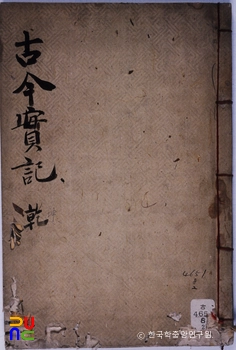 古今實記
乾
465
© 한국학중앙연구원